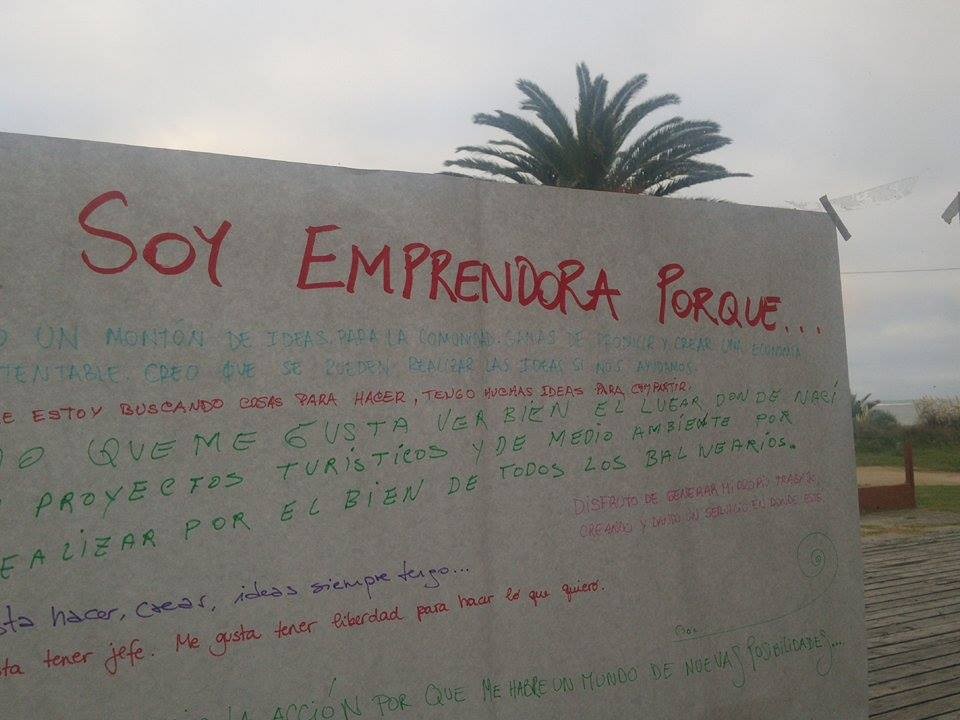 SOY EMPRENDORA PORQUE...
O UN MONTÓN DE IDEAS PARA LA COMUNIDAD. GANAS DE PRODUCIR Y CREAR UNA ECONOMÍA
TENTABLE. CREO QUE SE PUEDEN REALIZAR LAS IDEAS SI NOS AYUDAMOS.
E ESTOY BUSCANDO COSAS PARA HACER, TENGO MUCHAS IDEAS PARA COMPARTIR.
O QUE ME GUSTA VER BIEN EL LUGAR DONDE NACÍ
PROYECTOS TURISTICOS Y DE MEDIO AMBIENTE POR
EALIZAR POR EL BIEN DE TODOS LOS BALNEARIOS.
DISFRUTO DE GENERAR MI PROPIO TRABAJO,
CREANDO Y DANDO UN SERVICIO EN DONDE ESTE
sta hacer, crear, ideas siempre tengo...
sta tener jefe. Me gusta tener liberdad para hacer lo que quiero.
LA ACCIÓN POR QUE ME HABRE UN MUNDO DE NUEVAS POSIBILIDADES....